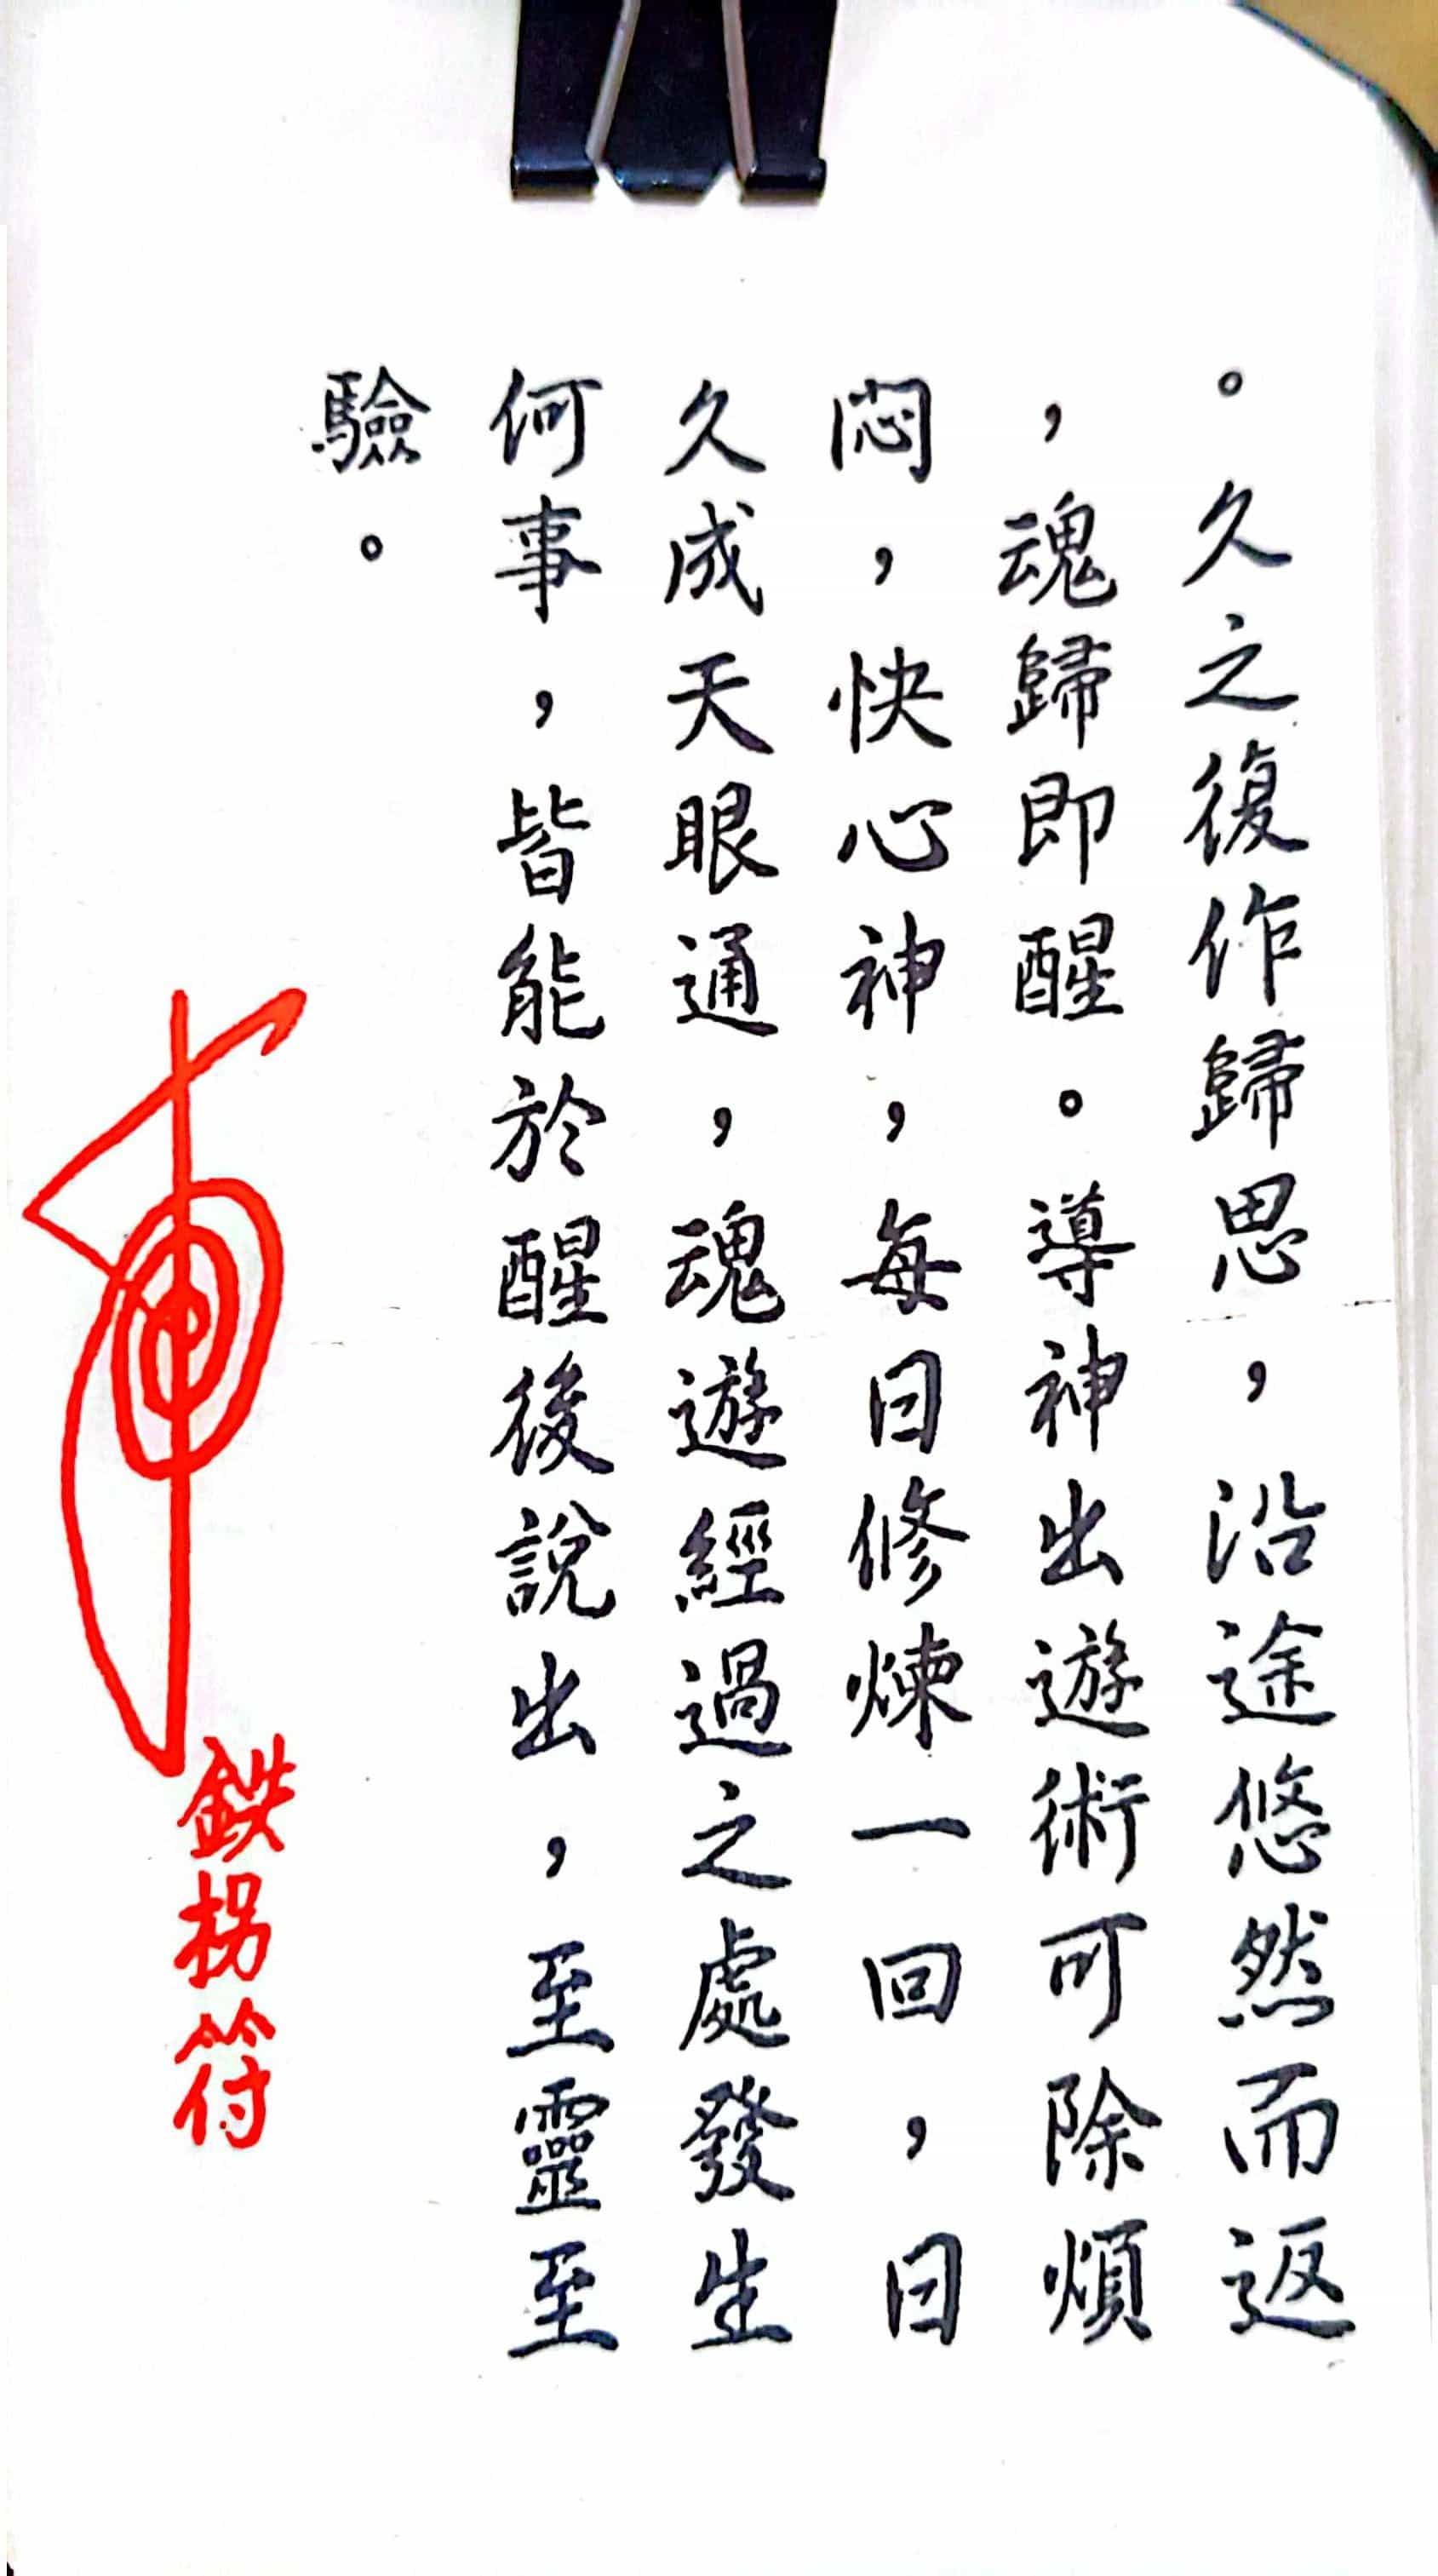 。久之復作歸思，沿途悠然而返
，魂歸即醒。導神出遊術可除煩
悶，快心神，每日修煉一回，日
久成天眼通，魂遊經過之處發生
何事，皆能於醒後說出，至靈至
驗。
鉄拐符